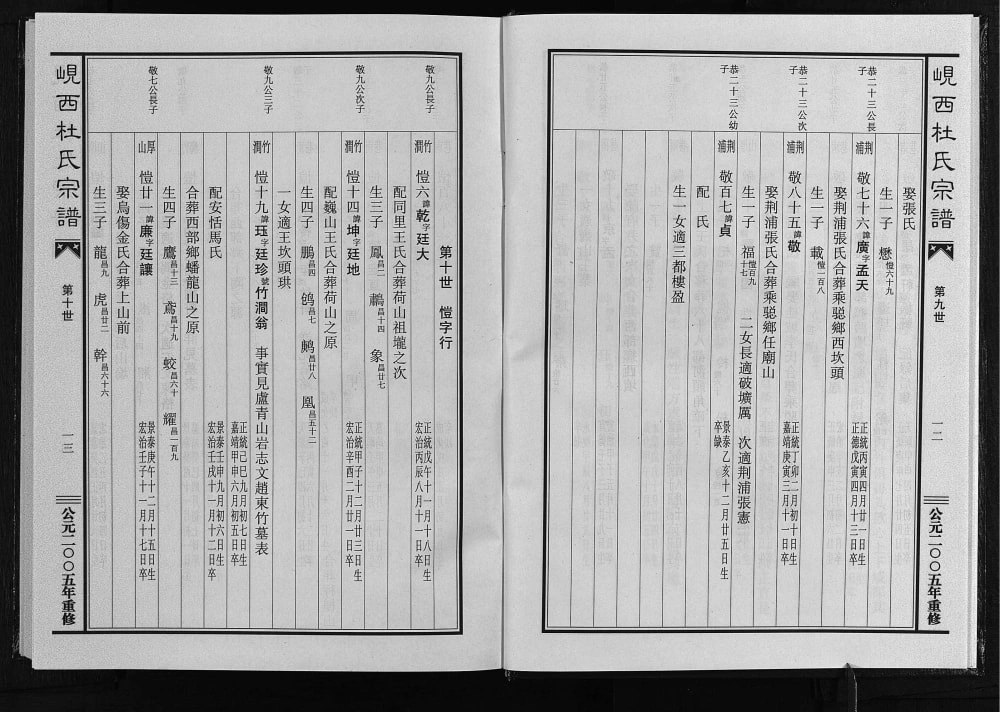 峴西杜氏宗譜
第九世
一二
公元二〇〇五年重修
娶張氏
生一子 懋愷六十九
恭二十三公長子
荆浦 敬七十六諱廣字孟天 正統丙寅四月廿一日生 正德戊寅四月十三日卒
娶荆浦張氏合葬乘驄鄉西坎頭
生一子 載愷一百八
恭二十三公次子
荆浦 敬八十五諱敬 正統丁卯二月初十日生 嘉靖庚寅三月十一日卒
娶荆浦張氏合葬乘驄鄉任廟山
生一子 福愷百九十七 二女長適破壙厲 次適荆浦張憲
恭二十三公幼子
荆浦 敬百七諱貞 景泰乙亥十二月廿五日生 卒缺
配 氏
生一女適三都樓盈
第十世 愷字行
敬九公長子
竹澗 愷六諱乾字廷大 正統戊午十一月十八日生 宏治丙辰八月十一日卒
配同里王氏合葬荷山祖壠之次
生三子 鳳昌二 鵜昌十四 象昌廿七
敬九公次子
竹澗 愷十四諱坤字廷地 正統甲子十二月廿三日生 宏治辛酉二月廿一日卒
配巍山王氏合葬荷山之原
生四子 鵬昌四 鴿昌七 鷞昌廿八 凰昌五十二
一女適王坎頭珙
敬九公三子
竹澗 愷十九諱珏字廷珍號竹澗翁 事實見盧青山岩志文趙東竹墓表
正統己巳九月初七日生 嘉靖甲申六月初五日卒
配安恬馬氏 景泰壬申九月初六日生 宏治壬戌十一月十二日卒
合葬西部鄉蟠龍山之原
生四子 鷹昌十三 鳶昌十九 蛟昌六十 耀昌一百九
敬七公長子
厚山 愷廿一諱廉字廷讓 景泰庚午十二月十五日生 宏治壬子十一月十七日卒
娶烏傷金氏合葬上山前
生三子 龍昌九 虎昌廿二 幹昌六十六
峴西杜氏宗譜
第十世
一三
公元二〇〇五年重修